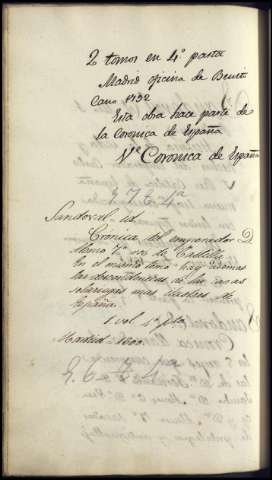 2 tomos en 4.º pasta
Madrid oficina de Benito
Cano 1792
Esta obra hace parte de
la Coronica de España
Ve Coronica de España
Sandoval - id
Cronica del emperador D.
Alonso 7º rey de Castilla
En el mismo tomo hay ademas
las descendencias de las casas
solariegas mas ilustres de
España.
1. vol. 4º pta
Madrid - 1600